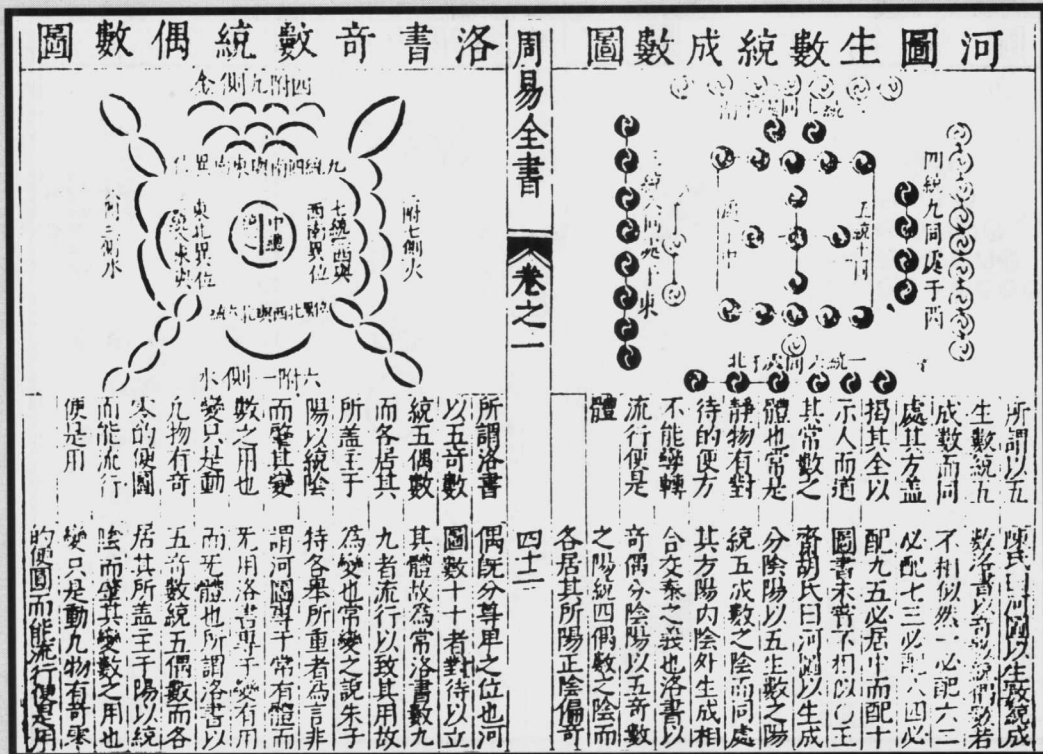 河圖生數統成數圖
四統九同處于西
五
一統六同處于北
所謂以五
生數統五
成數而同
處其方蓋
揭其全以
示人而道
其常數之
體也常是
靜物有對
待的便方
不能孿轉
流行便是
體
陳氏曰河圖以生數統成
數洛書以奇數統偶數若
不相似然一必配六二
必配七三必配八四必
配九五必居中而配十
圖書未嘗不相似
齋胡氏曰河圖以生成
分陰陽以五生數之陽
統五成數之陰而同處
其方陽內陰外生成相
合交泰之義也洛書以
奇偶分陰陽以五奇數
之陽統四偶數之陰而
各居其所陽正陰偏奇
周易全書
卷之一
四十二
洛書奇數統偶數圖
四附九側金
九統四南與東南異位
二附七側火
七統二西與
西南異位
中
東北異位
六附一側水
所謂洛書
以五奇數
統五偶數
而各居其
所蓋主于
陽以統陰
而肇其變
數之用也
變只是動
凡物有奇
零的便圓
而能流行
便是用
偶既分尊卑之位也河
圖數十十者對待以立
其體故為常洛書數九
九者流行以致其用故
為變也常變之說朱子
特各舉所重者為言非
謂河圖專于常有體而
无用洛書專于變有用
而无體也所謂洛書以
五奇數統五偶數而各
居其所蓋主于陽以統
陰而肇其變數之用也
變只是動凡物有奇零
的便圓而能流行便是用